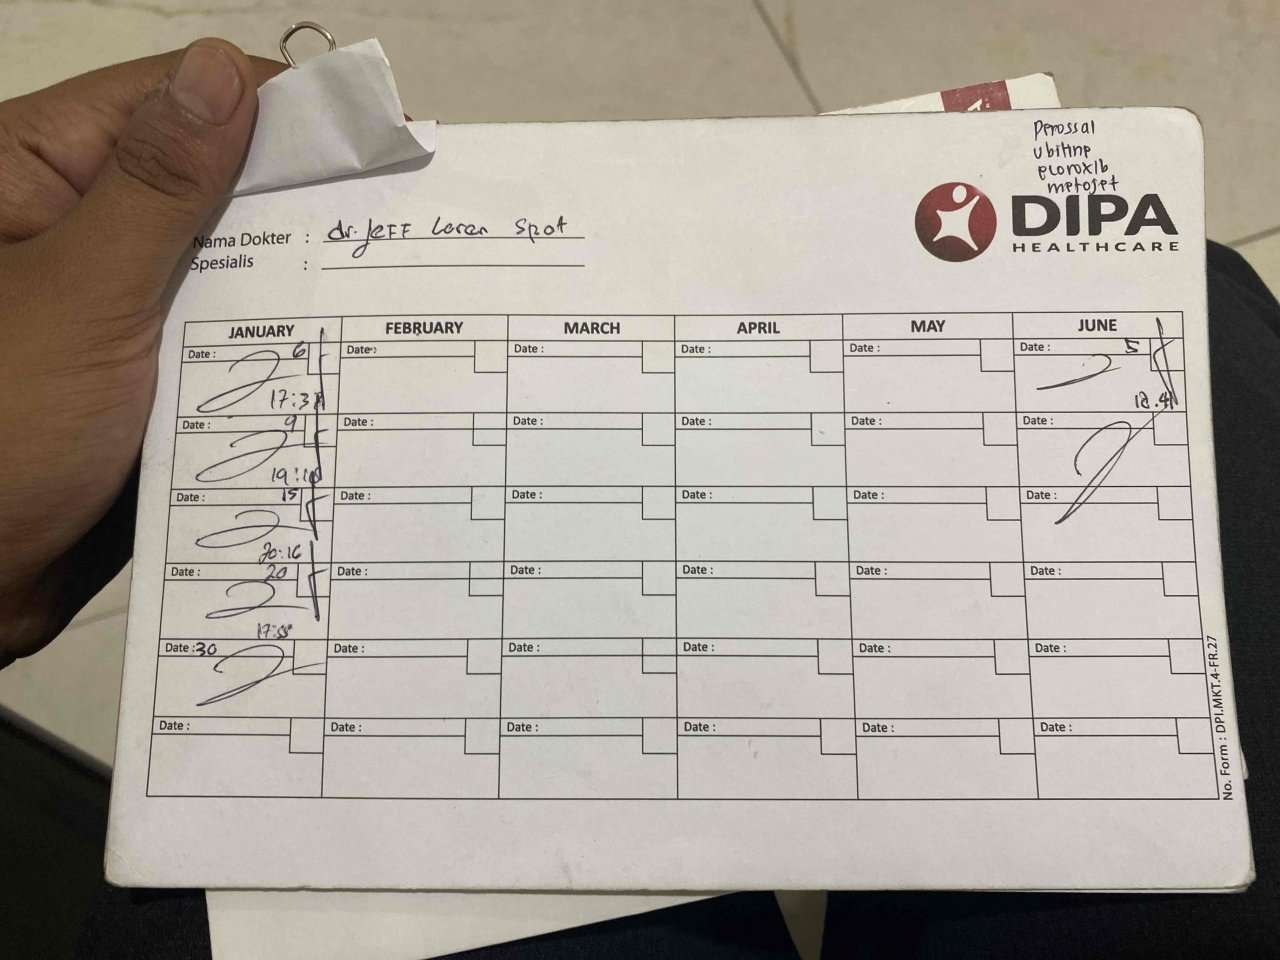 Perossal
Ubiting
etoroxib
metoset
DIPA
HEALTHCARE
Nama Dokter : dr. Jeff Loran Spot
Spesialis :
JANUARY FEBRUARY MARCH APRIL MAY JUNE
Date : 6 Date : Date : Date : Date : Date : 5
17:37 18.41
Date : 9 Date : Date : Date : Date : Date :
19:10
Date : 15 Date : Date : Date : Date : Date :
20:16
Date : 20 Date : Date : Date : Date : Date :
17:55
Date : 30 Date : Date : Date : Date : Date :
Date : Date : Date : Date : Date : Date :
No. Form : DPI.MKT.4-FR.27